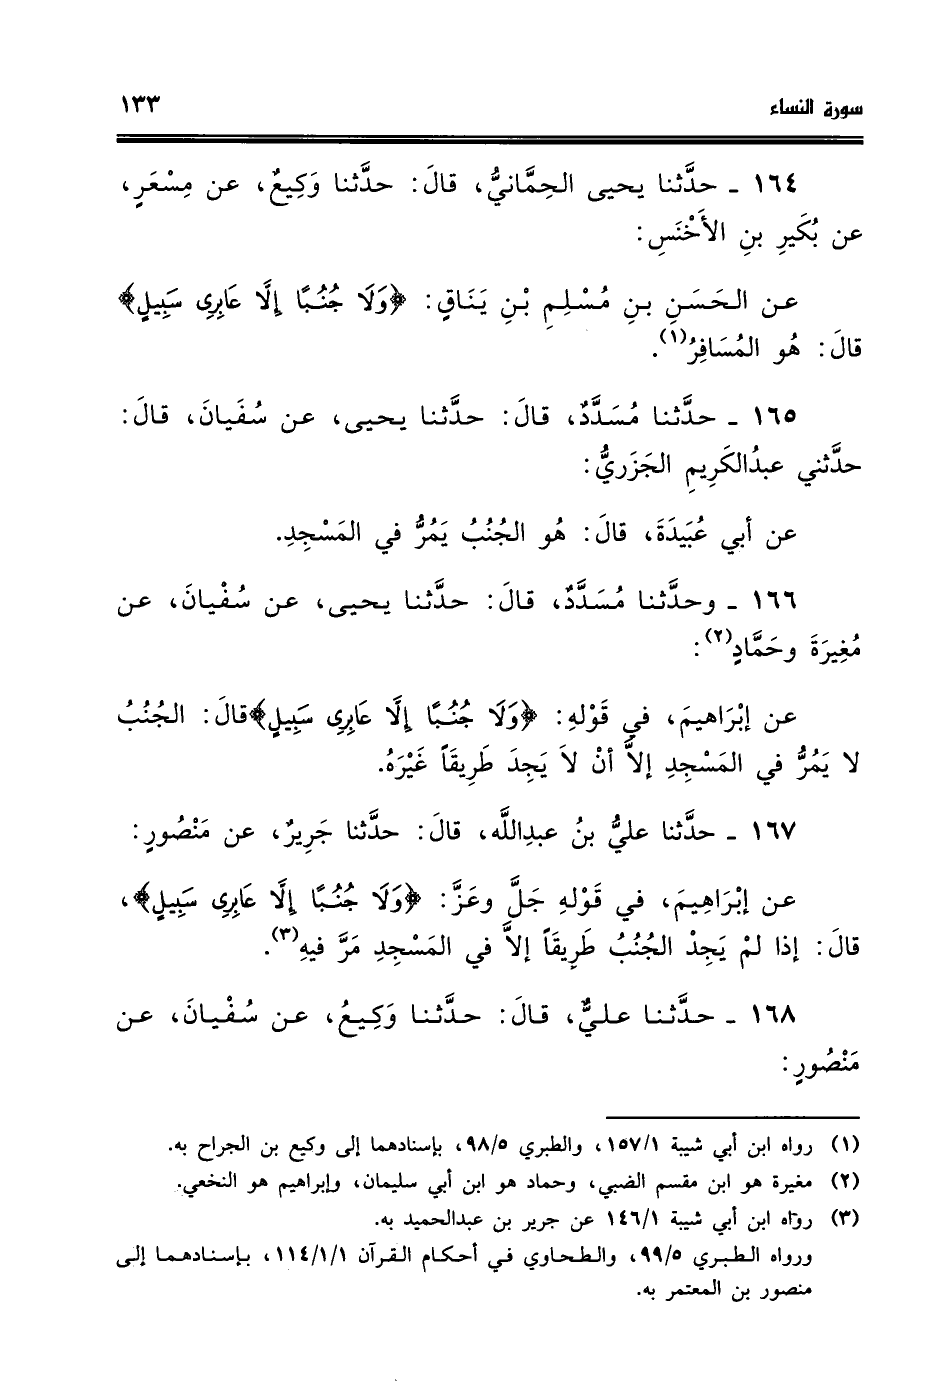 سورة النساء ١٣٣
١٦٤ ـ حدَّثنا يحيى الحِمَّانيُّ، قالَ: حدَّثنا وَكِيعٌ، عن مِسْعَرٍ،
عن بُكَيرِ بنِ الأَخْنَسِ:
عن الحَسَنِ بنِ مُسْلِمِ بْنِ يَنَاقٍ: ﴿وَلَا جُنُبًا إِلَّا عَابِرِى سَبِيلٍ﴾
قالَ: هُو المُسَافِرُ(١).
١٦٥ ـ حدَّثنا مُسَدَّدٌ، قالَ: حدَّثنا يحيى، عن سُفَيانَ، قالَ:
حدَّثني عبدُالكَرِيمِ الجَزَريُّ:
عن أبي عُبَيدَةَ، قالَ: هُو الجُنُبُ يَمُرُّ في المَسْجِدِ.
١٦٦ ـ وحدَّثنا مُسَدَّدٌ، قالَ: حدَّثنا يحيى، عن سُفْيانَ، عن
مُغِيرَةَ وحَمَّادٍ(٢):
عن إبْرَاهيمَ، في قَوْلهِ: ﴿وَلَا جُنُبًا إِلَّا عَابِرِى سَبِيلٍ﴾قالَ: الجُنُبُ
لا يَمُرُّ في المَسْجِدِ إلاَّ أنْ لاَ يَجِدَ طَرِيقَاً غَيْرَهُ.
١٦٧ ـ حدَّثنا عليُّ بنُ عبدِاللَّه، قالَ: حدَّثنا جَرِيرٌ، عن مَنْصُورٍ:
عن إبْرَاهِيمَ، في قَوْلهِ جَلَّ وعَزَّ: ﴿وَلَا جُنُبًا إِلَّا عَابِرِى سَبِيلٍ﴾،
قالَ: إذا لمْ يَجِدْ الجُنُبُ طَرِيقَاً إلاَّ في المَسْجِدِ مَرَّ فيهِ(٣).
١٦٨ ـ حدَّثنا عليٌّ، قالَ: حدَّثنا وَكِيعُ، عن سُفْيانَ، عن
مَنْصُورٍ:
(١) رواه ابن أبي شيبة ١/ ١٥٧، والطبري ٥/ ٩٨، بإسنادهما إلى وكيع بن الجراح به.
(٢) مغيرة هو ابن مقسم الضبي، وحماد هو ابن أبي سليمان، وإبراهيم هو النخعي.
(٣) رواه ابن أبي شيبة ١/ ١٤٦ عن جرير بن عبدالحميد به.
ورواه الطبري ٥/ ٩٩، والطحاوي في أحكام القرآن ١/ ١/ ١١٤، بإسنادهما إلى
منصور بن المعتمر به.